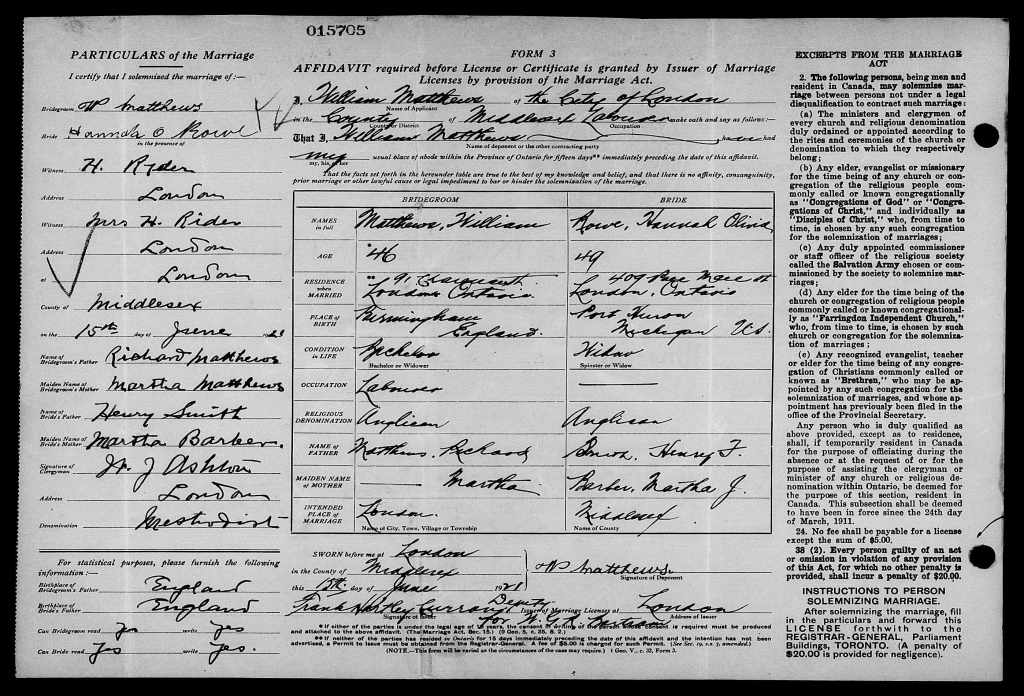 015705
PARTICULARS of the Marriage
I certify that I solemnized the marriage of:—
Bridegroom W Matthews
Bride Hannah O Rowe
in the presence of
Witness H. Ryder
Address London
Witness Mrs. H. Rider
Address London
at London
County of Middlesex
on the 15th day of June 1921
Name of Bridegroom's Father Richard Matthews
Maiden Name of Bridegroom's Mother Martha Matthews
Name of Bride's Father Henry Smith
Maiden Name of Bride's Mother Martha Barber.
Signature of Clergyman J Ashton
Address London
Denomination Methodist
For statistical purposes, please furnish the following
information:—
Birthplace of Bridegroom's Father England
Birthplace of Bride's Father England
Can Bridegroom read yes write yes
Can Bride read yes write yes.
FORM 3
AFFIDAVIT required before License or Certificate is granted by Issuer of Marriage
Licenses by provision of the Marriage Act.
I, William Matthews of the City of London
Name of Applicant
in the County of Middlesex Labourer make oath and say as follows:—
County or District Occupation
That I, William Matthews have had
Name of deponent or the other contracting party
my usual place of abode within the Province of Ontario for fifteen days** immediately preceding the date of this affidavit.
my, his, her
That the facts set forth in the hereunder table are true to the best of my knowledge and belief, and that there is no affinity, consanguinity,
prior marriage or other lawful cause or legal impediment to bar or hinder the solemnization of the marriage.
BRIDEGROOM BRIDE
NAMES in full Matthews, William Rowe, Hannah
AGE 46 49
RESIDENCE when MARRIED 91 London Ontario 409 St London, Ontario
PLACE OF BIRTH Birmingham England. Port Huron Michigan U.S.
CONDITION IN LIFE Bachelor Widow
Bachelor or Widower Spinster or Widow
OCCUPATION Labourer ———
RELIGIOUS DENOMINATION Anglican Anglican
NAME OF FATHER Matthews, Richard Henry F.
MAIDEN NAME OF MOTHER ——— Martha Barber, Martha J.
INTENDED PLACE OF MARRIAGE London. Middlesex
Name of City, Town, Village or Township Name of County
SWORN before me at London
in the County of Middlesex W Matthews.
Signature of Deponent
this 15th day of June 1921
Frank Hartley Deputy Issuer of Marriage Licenses at London
Signature of Issuer for W. G. R. Address of Issuer
*If either of the parties is under the legal age of 18 years, the consent in writing of the person whose consent is required must be produced
and attached to the above affidavit. (The Marriage Act, Sec. 15.) (9 Geo. 5, c. 35, s. 2.)
**If neither of the parties has resided in Ontario for 15 days immediately preceding the date of the affidavit and the intention has not been
advertised, a Permit to issue must be obtained from the Registrar-General. A fee of $5.00 is charged for such Permit. (See Sec. 19, s.s. 3, amended.)
(NOTE.—This form will be varied as the circumstances of the case may require.) 1 Geo. V., c. 32, Form 3.
EXCERPTS FROM THE MARRIAGE
ACT
2. The following persons, being men and
resident in Canada, may solemnize mar-
riage between persons not under a legal
disqualification to contract such marriage:
(a) The ministers and clergymen of
every church and religious denomination
duly ordained or appointed according to
the rites and ceremonies of the church or
denomination to which they respectively
belong;
(b) Any elder, evangelist or missionary
for the time being of any church or con-
gregation of the religious people com-
monly called or known congregationally
as "Congregations of God" or "Congre-
gations of Christ," and individually as
"Disciples of Christ," who, from time to
time, is chosen by any such congregation
for the solemnization of marriages;
(c) Any duly appointed commissioner
or staff officer of the religious society
called the Salvation Army chosen or com-
missioned by the society to solemnize mar-
riages;
(d) Any elder for the time being of the
church or congregation of religious people
commonly called or known congregational-
ly as "Farringdon Independent Church,"
who, from time to time, is chosen by such
church or congregation for the solemniza-
tion of marriages;
(e) Any recognized evangelist, teacher
or elder for the time being of any congre-
gation of Christians commonly called or
known as "Brethren," who may be ap-
pointed by any such congregation for the
solemnization of marriages, and whose ap-
pointment has previously been filed in the
office of the Provincial Secretary.
Any person who is duly qualified as
above provided, except as to residence,
shall, if temporarily resident in Canada
for the purpose of officiating during the
absence or at the request of or for the
purpose of assisting the clergyman or
minister of any church or religious de-
nomination within Ontario, be deemed for
the purpose of this section, resident in
Canada. This subsection shall be deemed
to have been in force since the 24th day
of March, 1911.
24. No fee shall be payable for a license
except the sum of $5.00.
38 (2). Every person guilty of an act
or omission in violation of any provision
of this Act, for which no other penalty is
provided, shall incur a penalty of $20.00.
INSTRUCTIONS TO PERSON
SOLEMNIZING MARRIAGE.
After solemnizing the marriage, fill
in the particulars and forward this
LICENSE forthwith to the
REGISTRAR-GENERAL, Parliament
Buildings, TORONTO. (A penalty of
$20.00 is provided for negligence).